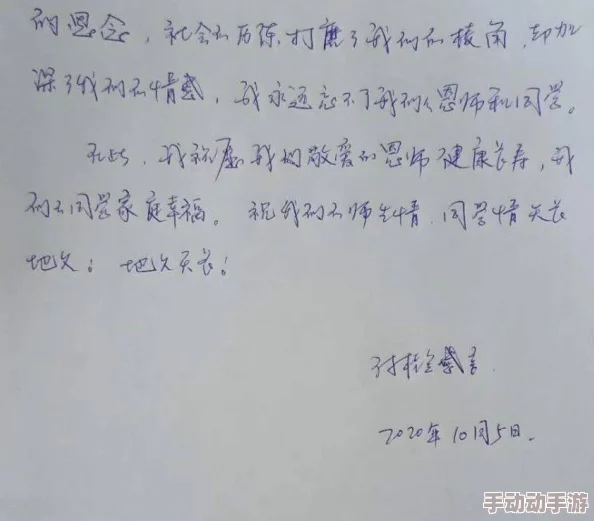 的思念，社会的历练打磨了我们的棱角，却加
深了我们的情感，我永远忘不了我们的恩师和同学。
在此，我祝愿我们敬爱的恩师健康长寿，我
们的同学家庭幸福。祝我们的师生情、同学情天长
地久；地久天长！
感言
2020年10月5日.
手动动手游